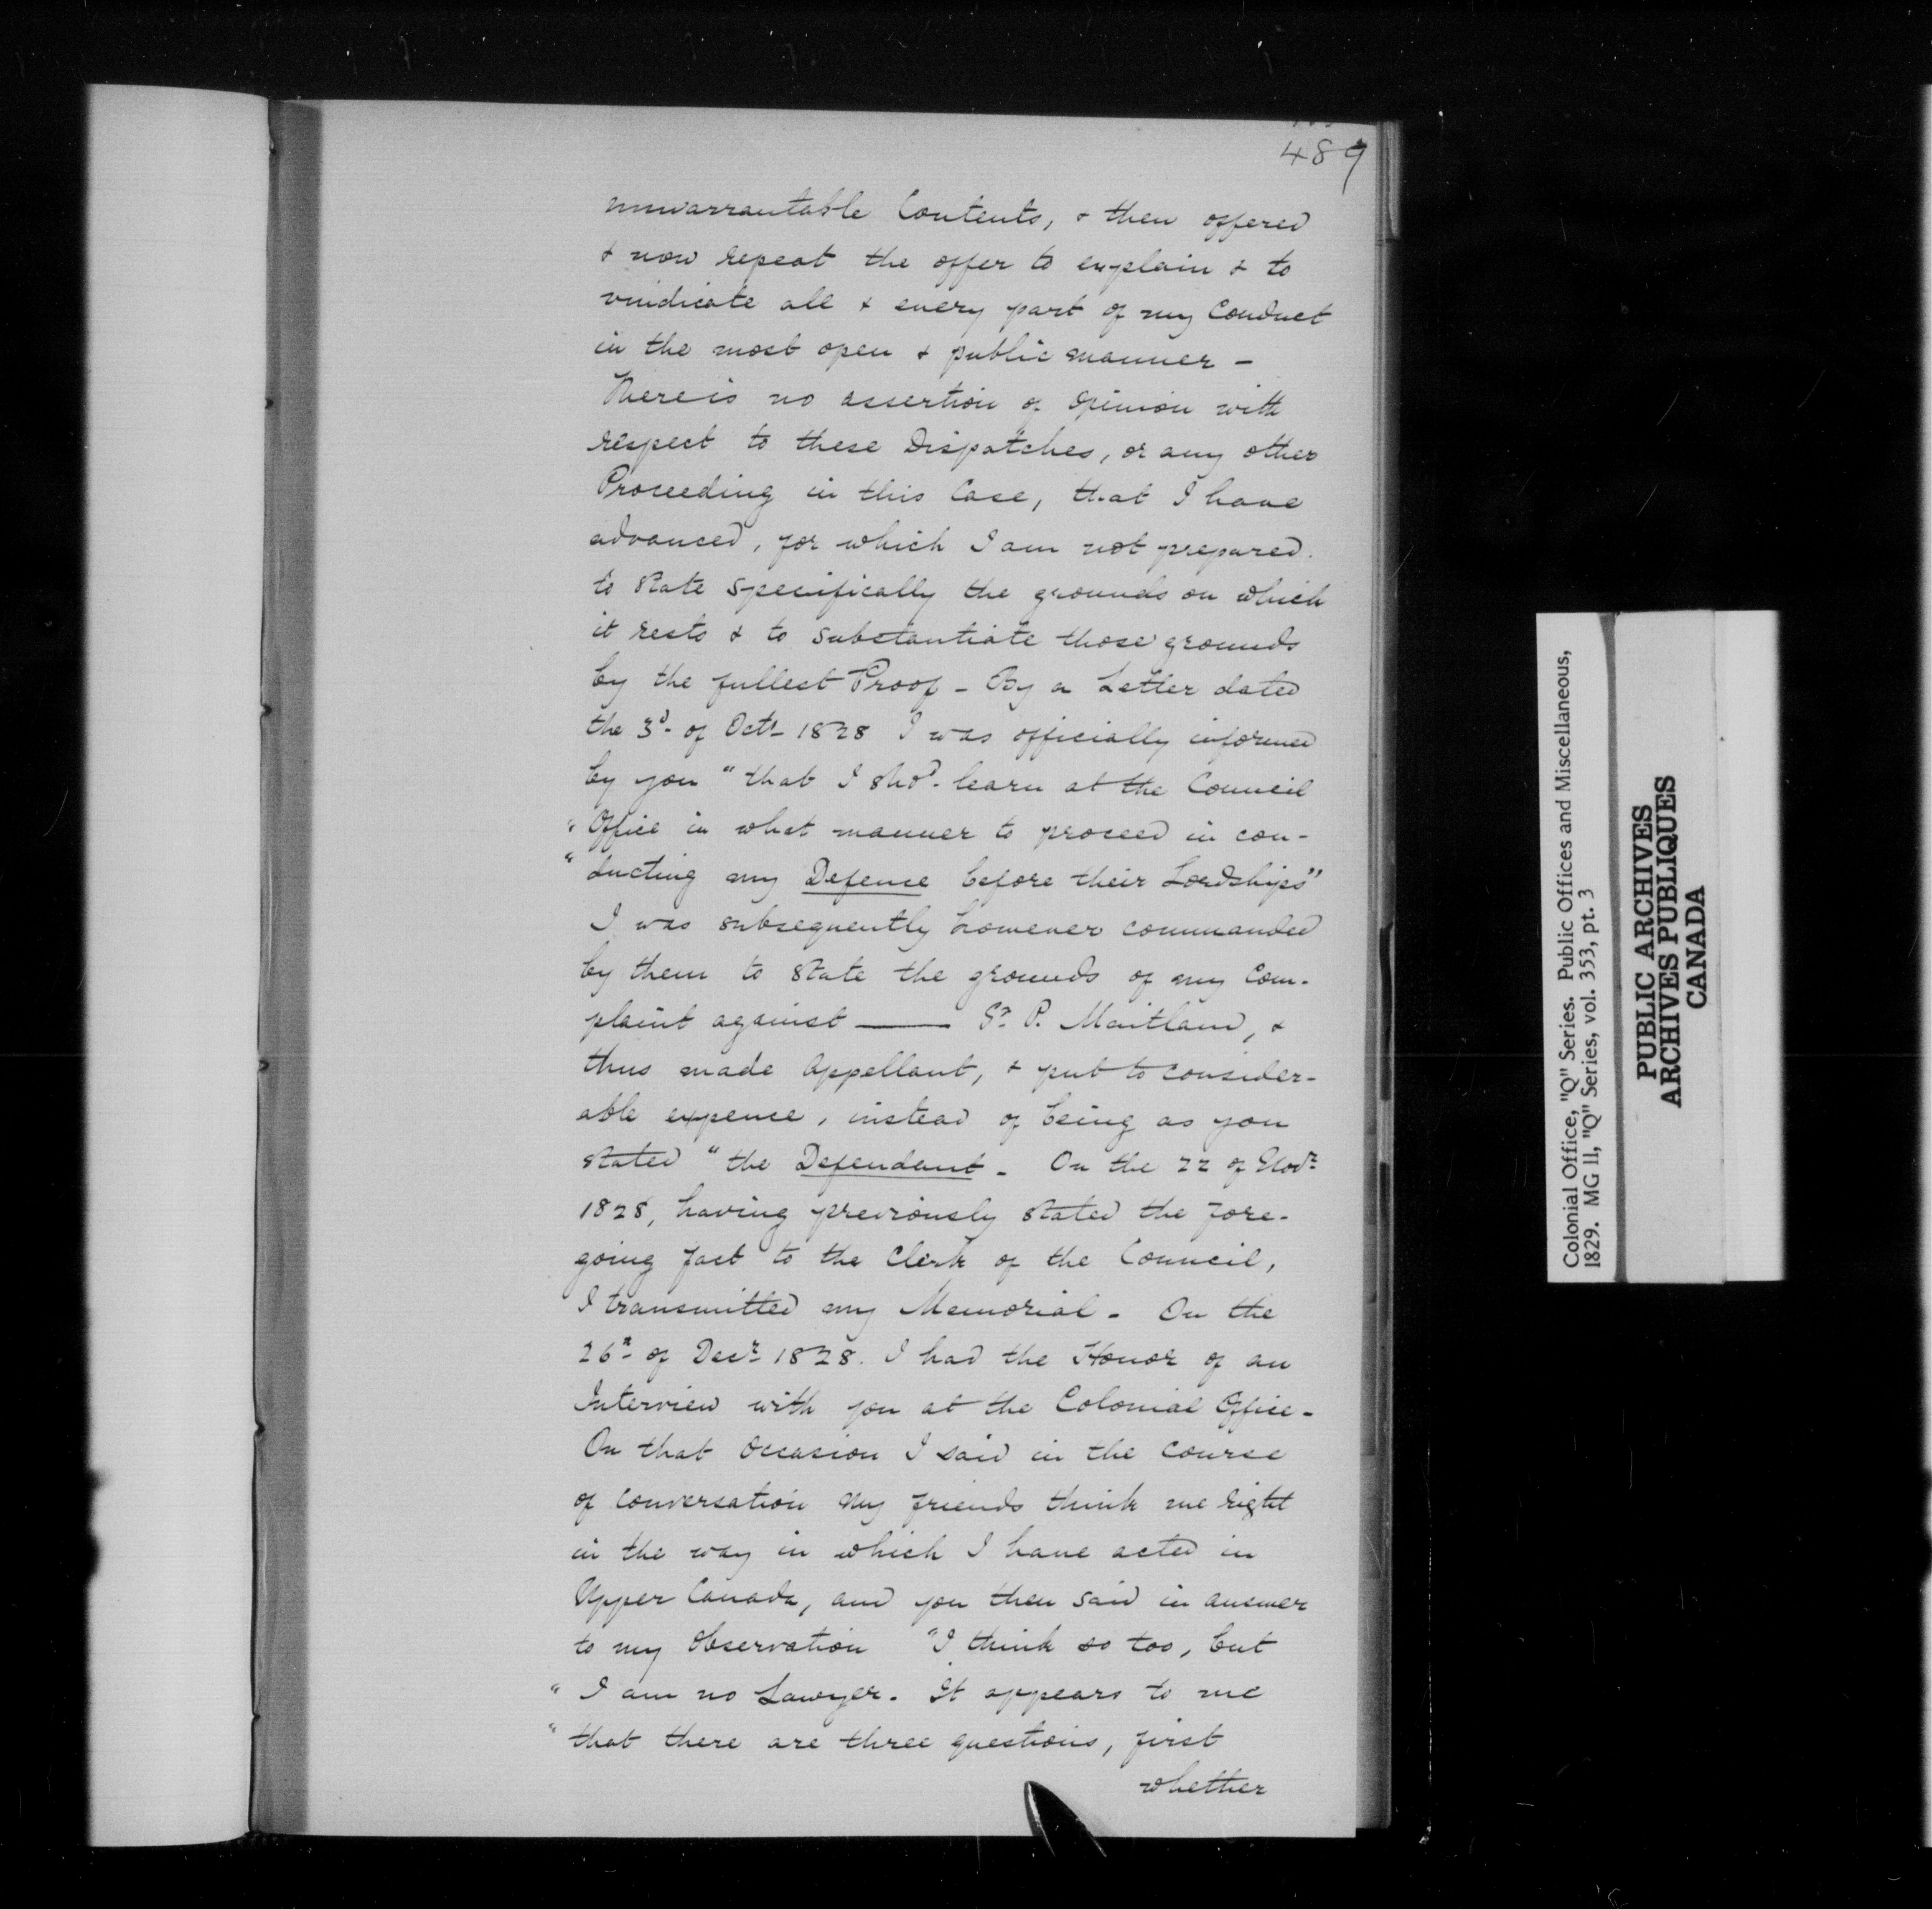 489
unwarrantable Contents, & then offered
& now repeat the offer to explain & to
vindicate all & every part of my Conduct
in the most open & public manner -
There is no assertion of Opinion with
respect to these Dispatches, or any other
Proceeding in this Case, that I have
advanced, for which I am not prepared.
to state specifically the grounds on which
it rests & to substantiate those grounds
by the fullest Proof - By a Letter dated
the 3d- of Octr- 1828 I was officially informed
by you "that I shod. learn at the Council
"Office in what manner to proceed in con-
"ducting my Defence before their Lordships"
I was subsequently however commanded
by them to state the grounds of my Com-
plaint against —— Sr. P. Maitland, &
thus made Appellant, & put to consider-
able expence, instead of being as you
stated "the Defendant - On the 22 of Novr
1828, having previously stated the fore-
going fact to the Clerk of the Council,
I transmitted my Memorial - On the
26th of Decr 1828. I had the Honor of an
Interview with you at the Colonial Office -
On that Occasion I said in the course
of conversation my friends think me right
in the way in which I have acted in
Upper Canada, and you then said in answer
to my Observation "I think so too, but
"I am no Lawyer. It appears to me
"that there are three questions, first
whether
Colonial Office, "Q" Series. Public Offices and Miscellaneous,
1829. MG 11, "Q" Series, vol. 353, pt. 3
PUBLIC ARCHIVES
ARCHIVES PUBLIQUES
CANADA